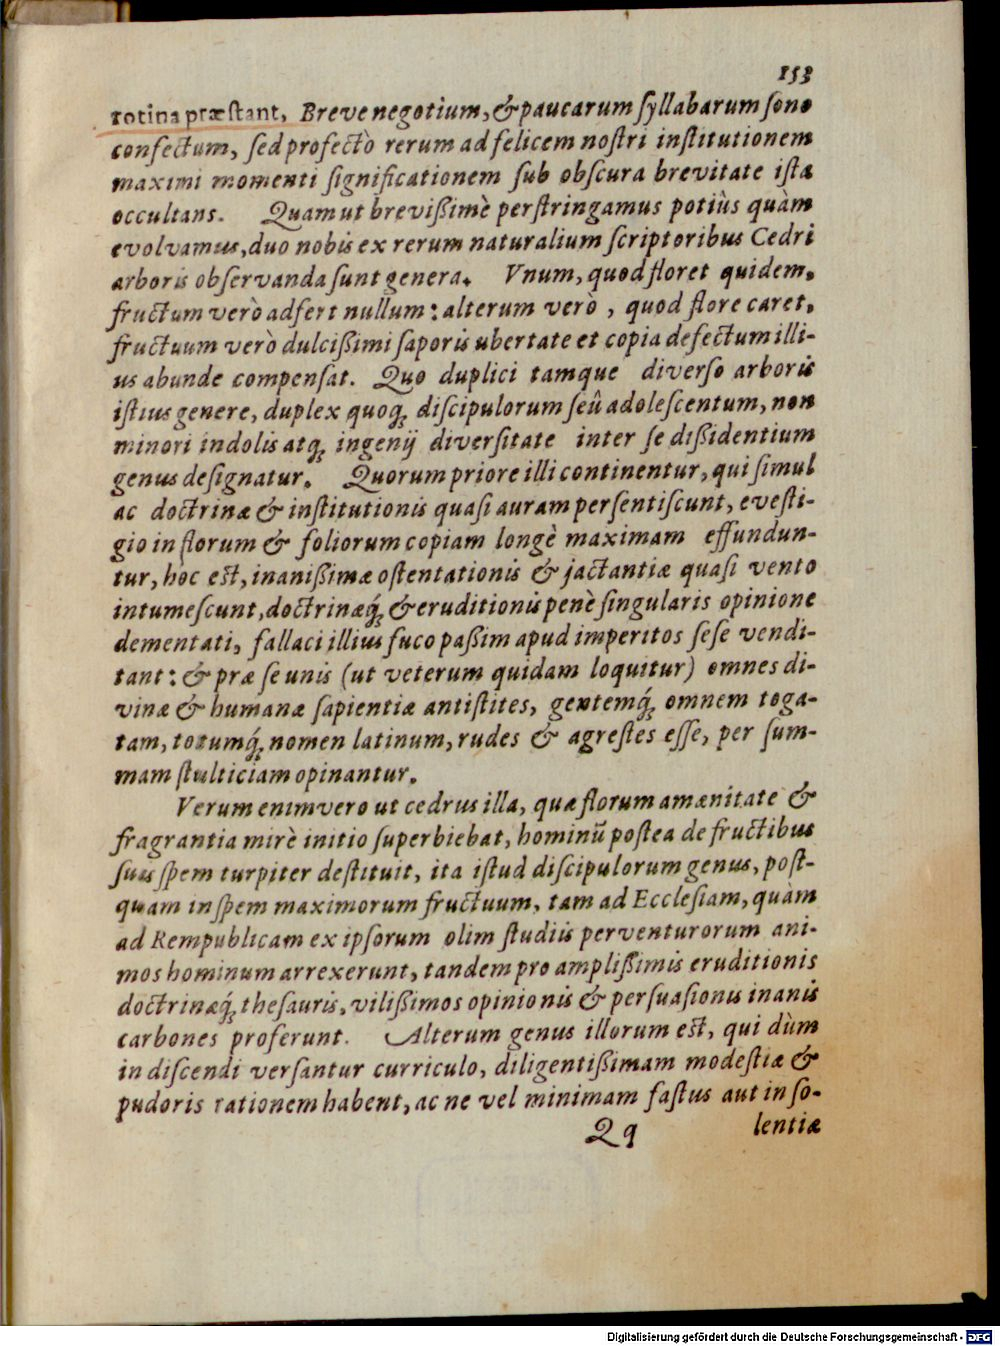 153
rotina præstant, Breve negotium, & paucarum syllabarum sono
confectum, sed profectò rerum ad felicem nostri institutionem
maximi momenti significationem sub obscura brevitate ista
occultans. Quam ut brevißimè perstringamus potiùs quàm
evolvamus, duo nobis ex rerum naturalium scriptoribus Cedri
arboris observanda sunt genera. Vnum, quod floret quidem,
fructum verò adfert nullum: alterum verò, quod flore caret,
fructuum verò dulcißimi saporis ubertate et copia defectum illi-
us abunde compensat. Quo duplici tamque diverso arboris
istius genere, duplex quoq; discipulorum seû adolescentum, non
minori indolis atq; ingenij diversitate inter se dißidentium
genus designatur. Quorum priore illi continentur, qui simul
ac doctrinæ & institutionis quasi auram persentiscunt, evesti-
gio in florum & foliorum copiam longè maximam effundun-
tur, hoc est, inanißimæ ostentationis & jactantiæ quasi vento
intumescunt, doctrinæq́; & eruditionis penè singularis opinione
dementati, fallaci illius fuco paßim apud imperitos sese vendi-
tant: & præ se unis (ut veterum quidam loquitur) omnes di-
vinæ & humanæ sapientiæ antistites, gentemq́; omnem toga-
tam, totumq́; nomen latinum, rudes & agrestes esse, per sum-
mam stulticiam opinantur.
Verum enimvero ut cedrus illa, quæ florum amænitate &
fragrantia mirè initio superbiebat, hominū postea de fructibus
suis spem turpiter destituit, ita istud discipulorum genus, post-
quam in spem maximorum fructuum, tam ad Ecclesiam, quàm
ad Rempublicam ex ipsorum olim studiis perventurorum ani-
mos hominum arrexerunt, tandem pro amplißimis eruditionis
doctrinæq́; thesauris, vilißimos opinionis & persuasionis inanis
carbones proferunt. Alterum genus illorum est, qui dùm
in discendi versantur curriculo, diligentißimam modestiæ &
pudoris rationem habent, ac ne vel minimam fastus aut inso-
Qq lentiæ
Digitalisierung gefördert durch die Deutsche Forschungsgemeinschaft - DFG